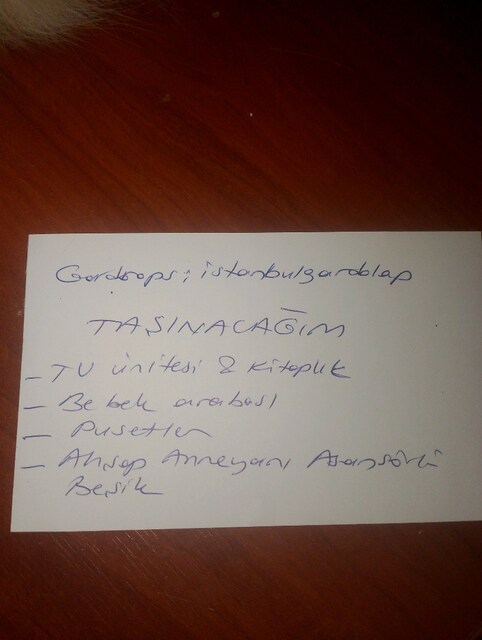 Gardrops; istanbulgardolap
TAŞINACAĞIM
- TV ünitesi & Kitaplık
- Bebek arabası
- Pusetler
- Ahşap Anneyanı Asansörlü
Beşik